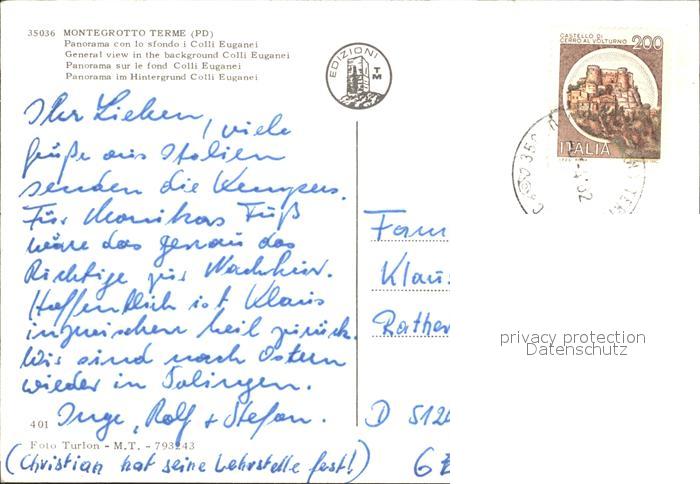 35036 MONTEGROTTO TERME (PD)
Panorama con lo sfondo i Colli Euganei
General view in the background Colli Euganei
Panorama sur le fond Colli Euganei
Panorama im Hintergrund Colli Euganei
EDIZIONI
TM
CASTELLO DI
CERRO AL VOLTURNO
200
ITALIA
Ihr Lieben, viele
Grüße aus Italien
senden die Kempers.
Für Monikas Fuß
wäre das genau das
Richtige zur Nachkur.
Hoffentlich ist Klaus
inzwischen heil zurück.
Wir sind nach Ostern
wieder in Solingen.
Inge, Rolf + Stefan.
(Christian hat seine Lehrstelle fest!)
Fam
Klaus
Rather
D 512
6
privacy protection
Datenschutz
401
Foto Turlon - M.T. - 793243